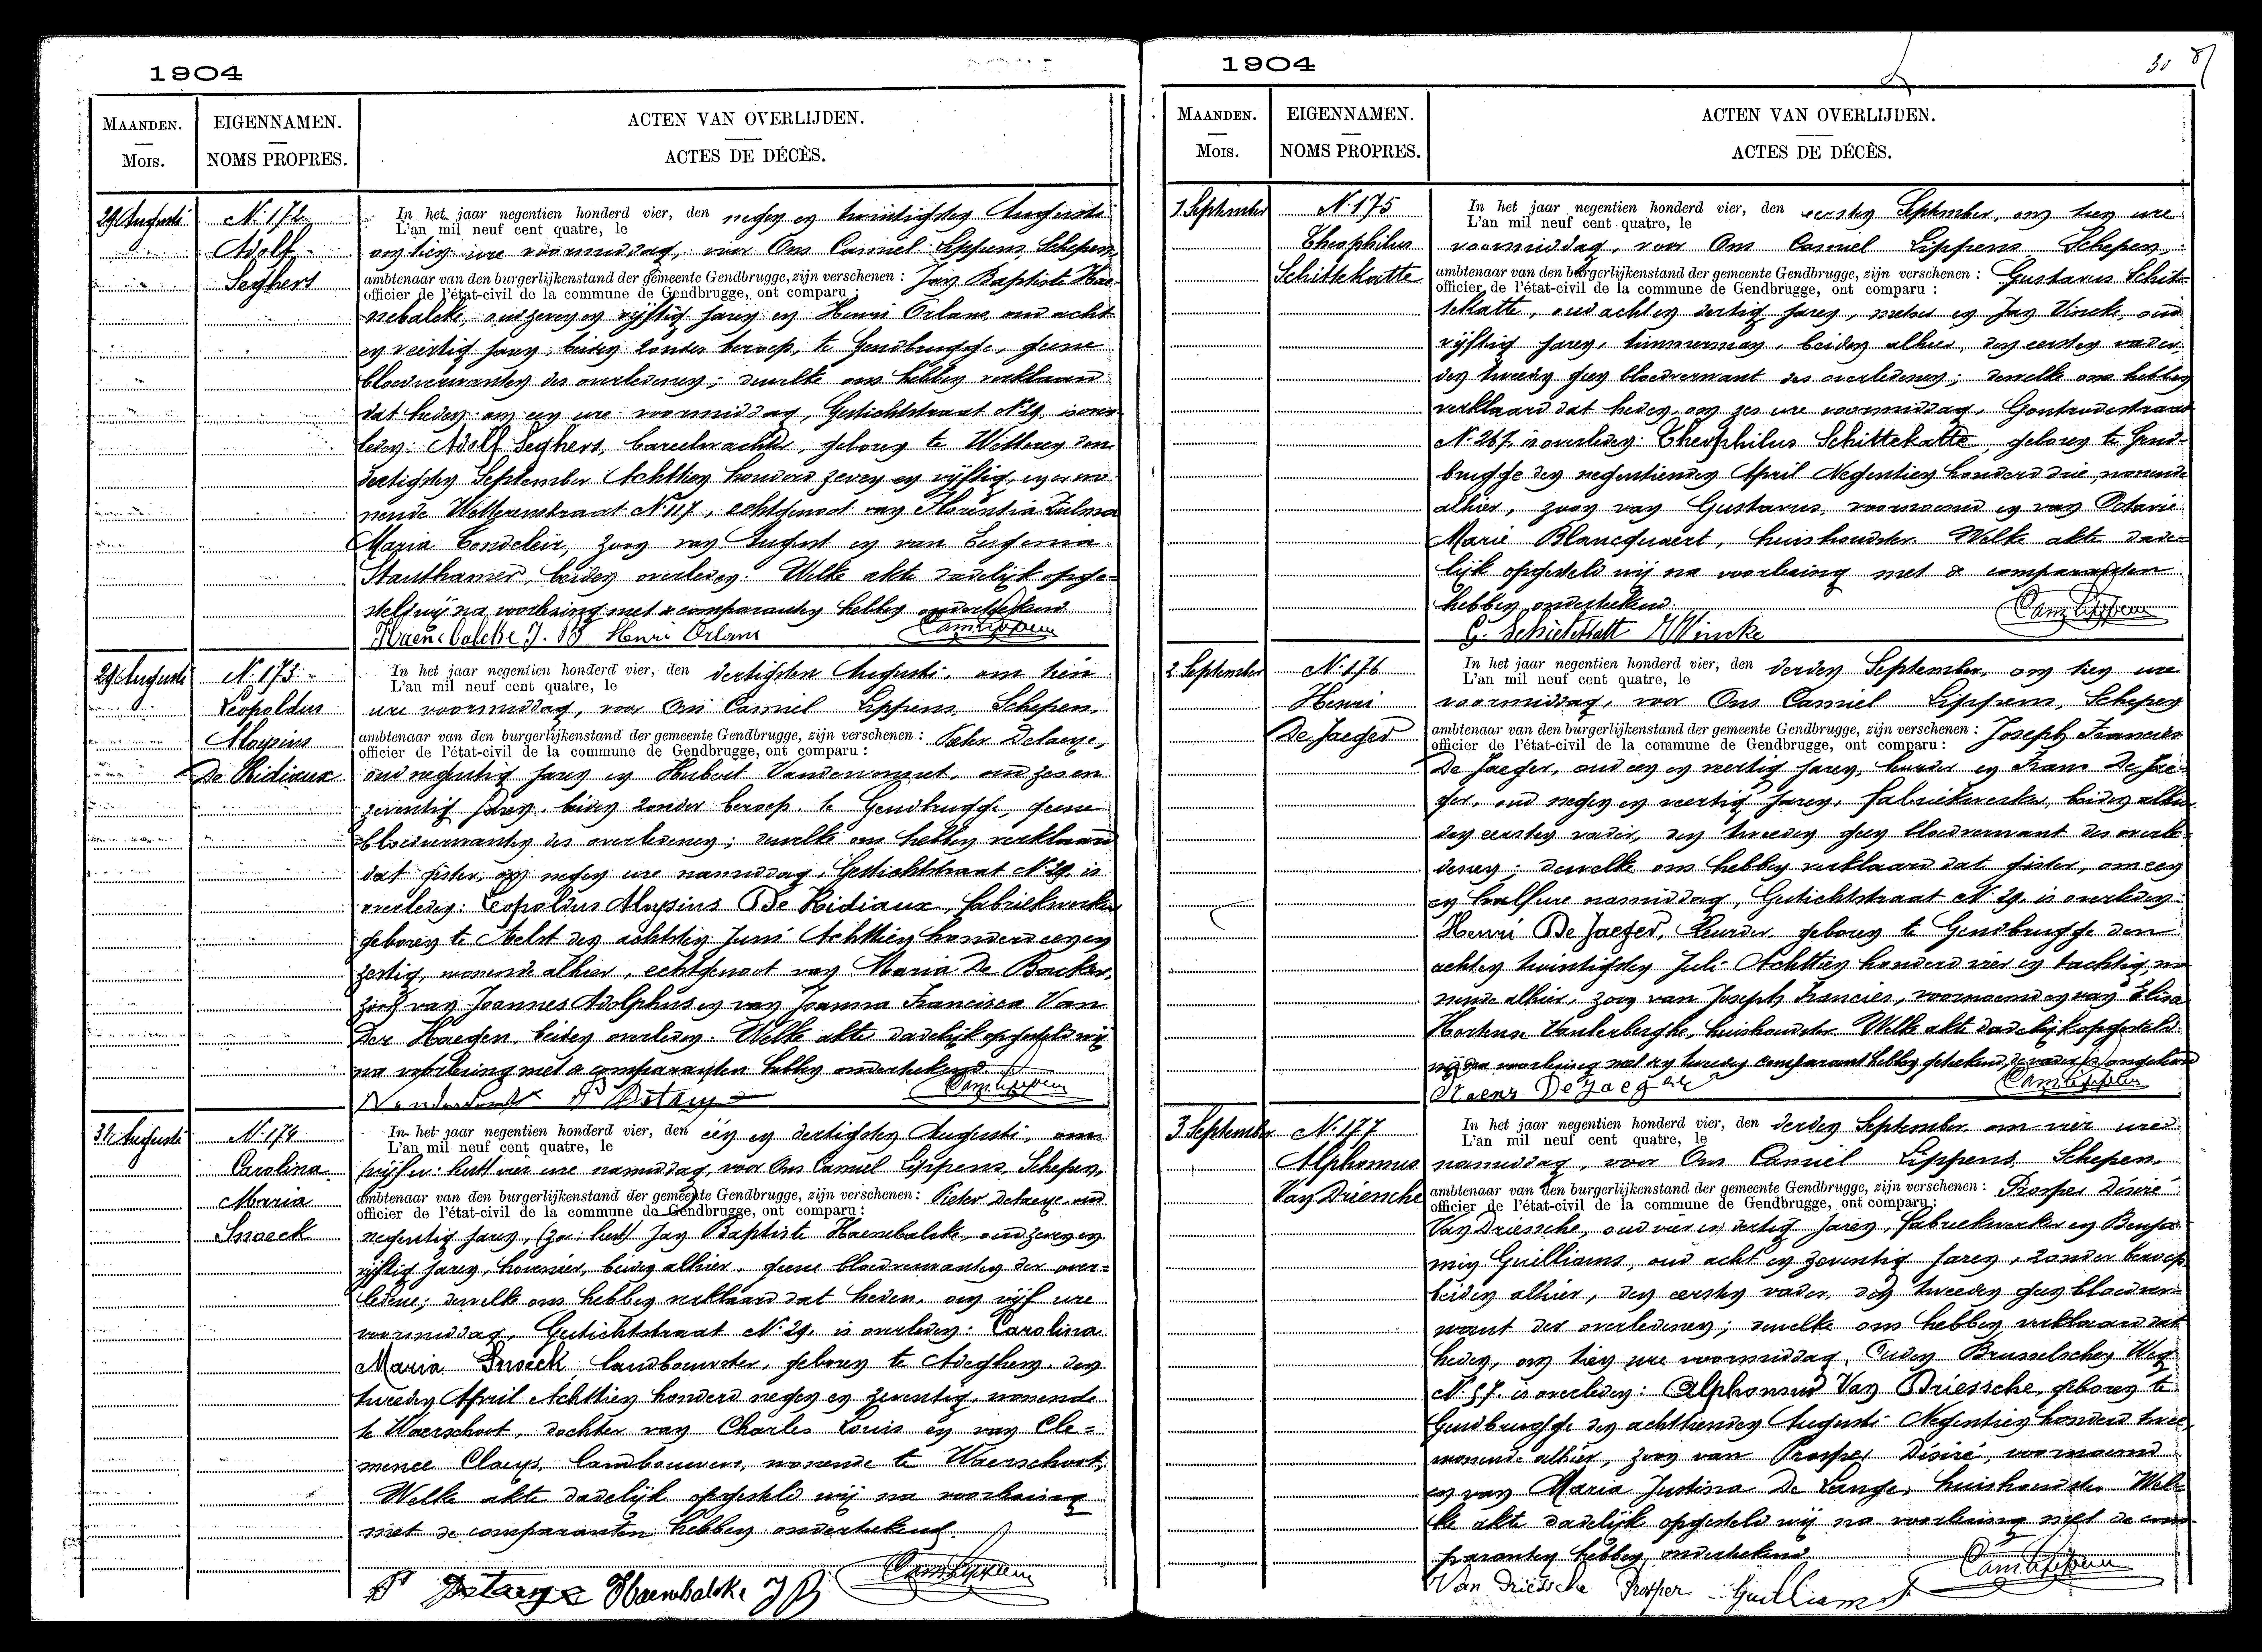 1904
MAANDEN.
Mois.
EIGENNAMEN.
NOMS PROPRES.
ACTEN VAN OVERLIJDEN.
ACTES DE DÉCÈS.
29 Augusti
N. 172
Adolf
Seghers
In het jaar negentien honderd vier, den negen en twintigsten Augusti
L'an mil neuf cent quatre, le
om tien ure voormiddag, voor Ons Camiel Lippens, Schepen,
ambtenaar van den burgerlijkenstand der gemeente Gendbrugge, zijn verschenen : Jan Baptiste Hae-
officier de l'état-civil de la commune de Gendbrugge, ont comparu :
nebalcke, oud zeven en vijftig jaren en Henri Orlans oud acht
en veertig jaren, beiden zonder beroep, te Gendbrugge, geene
bloedverwanten des overledenen; dewelke ons hebben verklaard
dat heden om een ure voormiddag, Gestichtstraat N. 29. is over
leden: Adolf Seghers, bareelwachter, geboren te Wetteren den
dertigsten September Achttien honderd zeven en vijftig, er wo
nende Wetterenstraat N. 117, echtgenoot van Florentia Zulma
Maria Condeleir, zoon van August en van Eugenia
Stauthamer, beiden overleden. Welke akte dadelijk opge-
steld wij na voorlezing met de comparanten hebben onderteekend
Haenebalcke J. B Henri Orlans Cam Lippens
29 Augusti
N. 173
Leopoldus
Aloysius
De Ridiaux
In het jaar negentien honderd vier, den dertigsten Augusti, om tien
L'an mil neuf cent quatre, le
ure voormiddag, voor Ons Camiel Lippens, Schepen,
ambtenaar van den burgerlijkenstand der gemeente Gendbrugge, zijn verschenen : Pieter Delaeye,
officier de l'état-civil de la commune de Gendbrugge, ont comparu :
oud negentig jaren en Hubert, oud zes en
zeventig jaren, beiden zonder beroep, te Gendbrugge, geene
bloedverwanten des overledenen; dewelke ons hebben verklaard
dat gister, om negen ure namiddag, Gestichtstraat N. 29. is
overleden: Leopoldus Aloysius De Ridiaux, fabriekwerker
geboren te Aelst den achtsten Juni Achttien honderd een en
zestig, wonende alhier, echtgenoot van Maria De Backer,
zoon van Joannes Adolphus en van Joanna Francisca Van
Der Haegen, beiden overleden. Welke akte dadelijk opgesteld wij
na voorlezing met de comparanten hebben onderteekend
Cam Lippens
31 Augusti
N. 174
Carolina
Maria
Snoeck
In het jaar negentien honderd vier, den één en dertigsten Augusti, om
L'an mil neuf cent quatre, le
vier ure namiddag, voor Ons Camiel Lippens, Schepen,
ambtenaar van den burgerlijkenstand der gemeente Gendbrugge, zijn verschenen : Pieter Delaeye oud
officier de l'état-civil de la commune de Gendbrugge, ont comparu :
negentig jaren, Jan Baptiste Haenebalcke, oud zeven en
vijftig jaren, hovenier, beiden alhier, geene bloedverwanten der over-
ledene; dewelke ons hebben verklaard dat heden, om vijf ure
voormiddag, Gestichtstraat N. 29. is overleden: Carolina
Maria Snoeck landbouwster, geboren te Adeghem den
tweeden April Achttien honderd negen en zeventig, wonende
te Waerschoot, dochter van Charles Louis en van Cle-
mence Claeys, landbouwers, wonende te Waerschoot.
Welke akte dadelijk opgesteld wij na voorlezing
met de comparanten hebben onderteekend.
Haenebalcke J B Cam Lippens
1904
30
MAANDEN.
Mois.
EIGENNAMEN.
NOMS PROPRES.
ACTEN VAN OVERLIJDEN.
ACTES DE DÉCÈS.
1 September
N. 175
Theophilus
Schittekatte
In het jaar negentien honderd vier, den eersten September, om tien ure
L'an mil neuf cent quatre, le
voormiddag, voor Ons Camiel Lippens Schepen
ambtenaar van den burgerlijkenstand der gemeente Gendbrugge, zijn verschenen : Gustavus Schit-
officier de l'état-civil de la commune de Gendbrugge, ont comparu :
tekatte, oud acht en dertig jaren, metser en Jan Vincke, oud
vijftig jaren, timmerman, beiden alhier, den eersten vader,
den tweeden geen bloedverwant des overledenen; dewelke ons hebben
verklaard dat heden, om zes ure voormiddag, Gontrodestraat
N. 267. is overleden: Theophilus Schittekatte, geboren te Gend-
brugge den negentienden April Negentien honderd drie, wonende
alhier, zoon van Gustavus, voornoemd en van Octavie
Marie Blancquaert, huishoudster. Welke akte dade-
lijk opgesteld wij na voorlezing met de comparanten
hebben onderteekend.
G. Schittekatt J Vincke Cam Lippens
2 September
N. 176
Henri
De Jaeger
In het jaar negentien honderd vier, den derden September, om tien ure
L'an mil neuf cent quatre, le
voormiddag, voor Ons Camiel Lippens, Schepen
ambtenaar van den burgerlijkenstand der gemeente Gendbrugge, zijn verschenen : Joseph Francies
officier de l'état-civil de la commune de Gendbrugge, ont comparu :
De Jaeger, oud een en veertig jaren, leurder en Frans De Jae-
ger, oud negen en veertig jaren, fabriekwerker, beiden alhier
den eersten vader, den tweeden geen bloedverwant des overle-
denen; dewelke ons hebben verklaard dat gister, om een
en half ure namiddag, Gestichtstraat N. 29. is overleden:
Henri De Jaeger, Leurder, geboren te Gendbrugge den
acht en twintigsten Juli Achttien honderd vier en tachtig, wo
nende alhier, zoon van Joseph Francies, voornoemd en van Elisa
Hortense Vanlerberghe, huishoudster. Welke akte dadelijk opgesteld
wij na voorlezing met den tweeden comparant hebben geteekend, de vader is ongeleerd
Frans De Jaeger Cam Lippens
3 September
N. 177
Alphonsus
Van Driessche
In het jaar negentien honderd vier, den derden September om vier ure
L'an mil neuf cent quatre, le
namiddag, voor Ons Camiel Lippens Schepen
ambtenaar van den burgerlijkenstand der gemeente Gendbrugge, zijn verschenen : Prosper Désiré
officier de l'état-civil de la commune de Gendbrugge, ont comparu :
Van Driessche, oud vier en dertig jaren, fabriekwerker en Benja-
min Guilliams, oud acht en zeventig jaren, zonder beroep
beiden alhier, den eersten vader, den tweeden geen bloedver-
want des overledenen; dewelke ons hebben verklaard dat
heden, om tien ure voormiddag, Ouden Brusselschen Weg
N. 57. is overleden: Alphonsus Van Driessche, geboren te
Gendbrugge den achttienden Augusti Negentien honderd twee,
wonende alhier, zoon van Prosper Désiré, voornoemd
en van Maria Justina De Lange, huishoudster. Wel-
ke akte dadelijk opgesteld wij na voorlezing met de com-
paranten hebben onderteekend.
Van Driessche Prosper Guilliams Cam Lippens